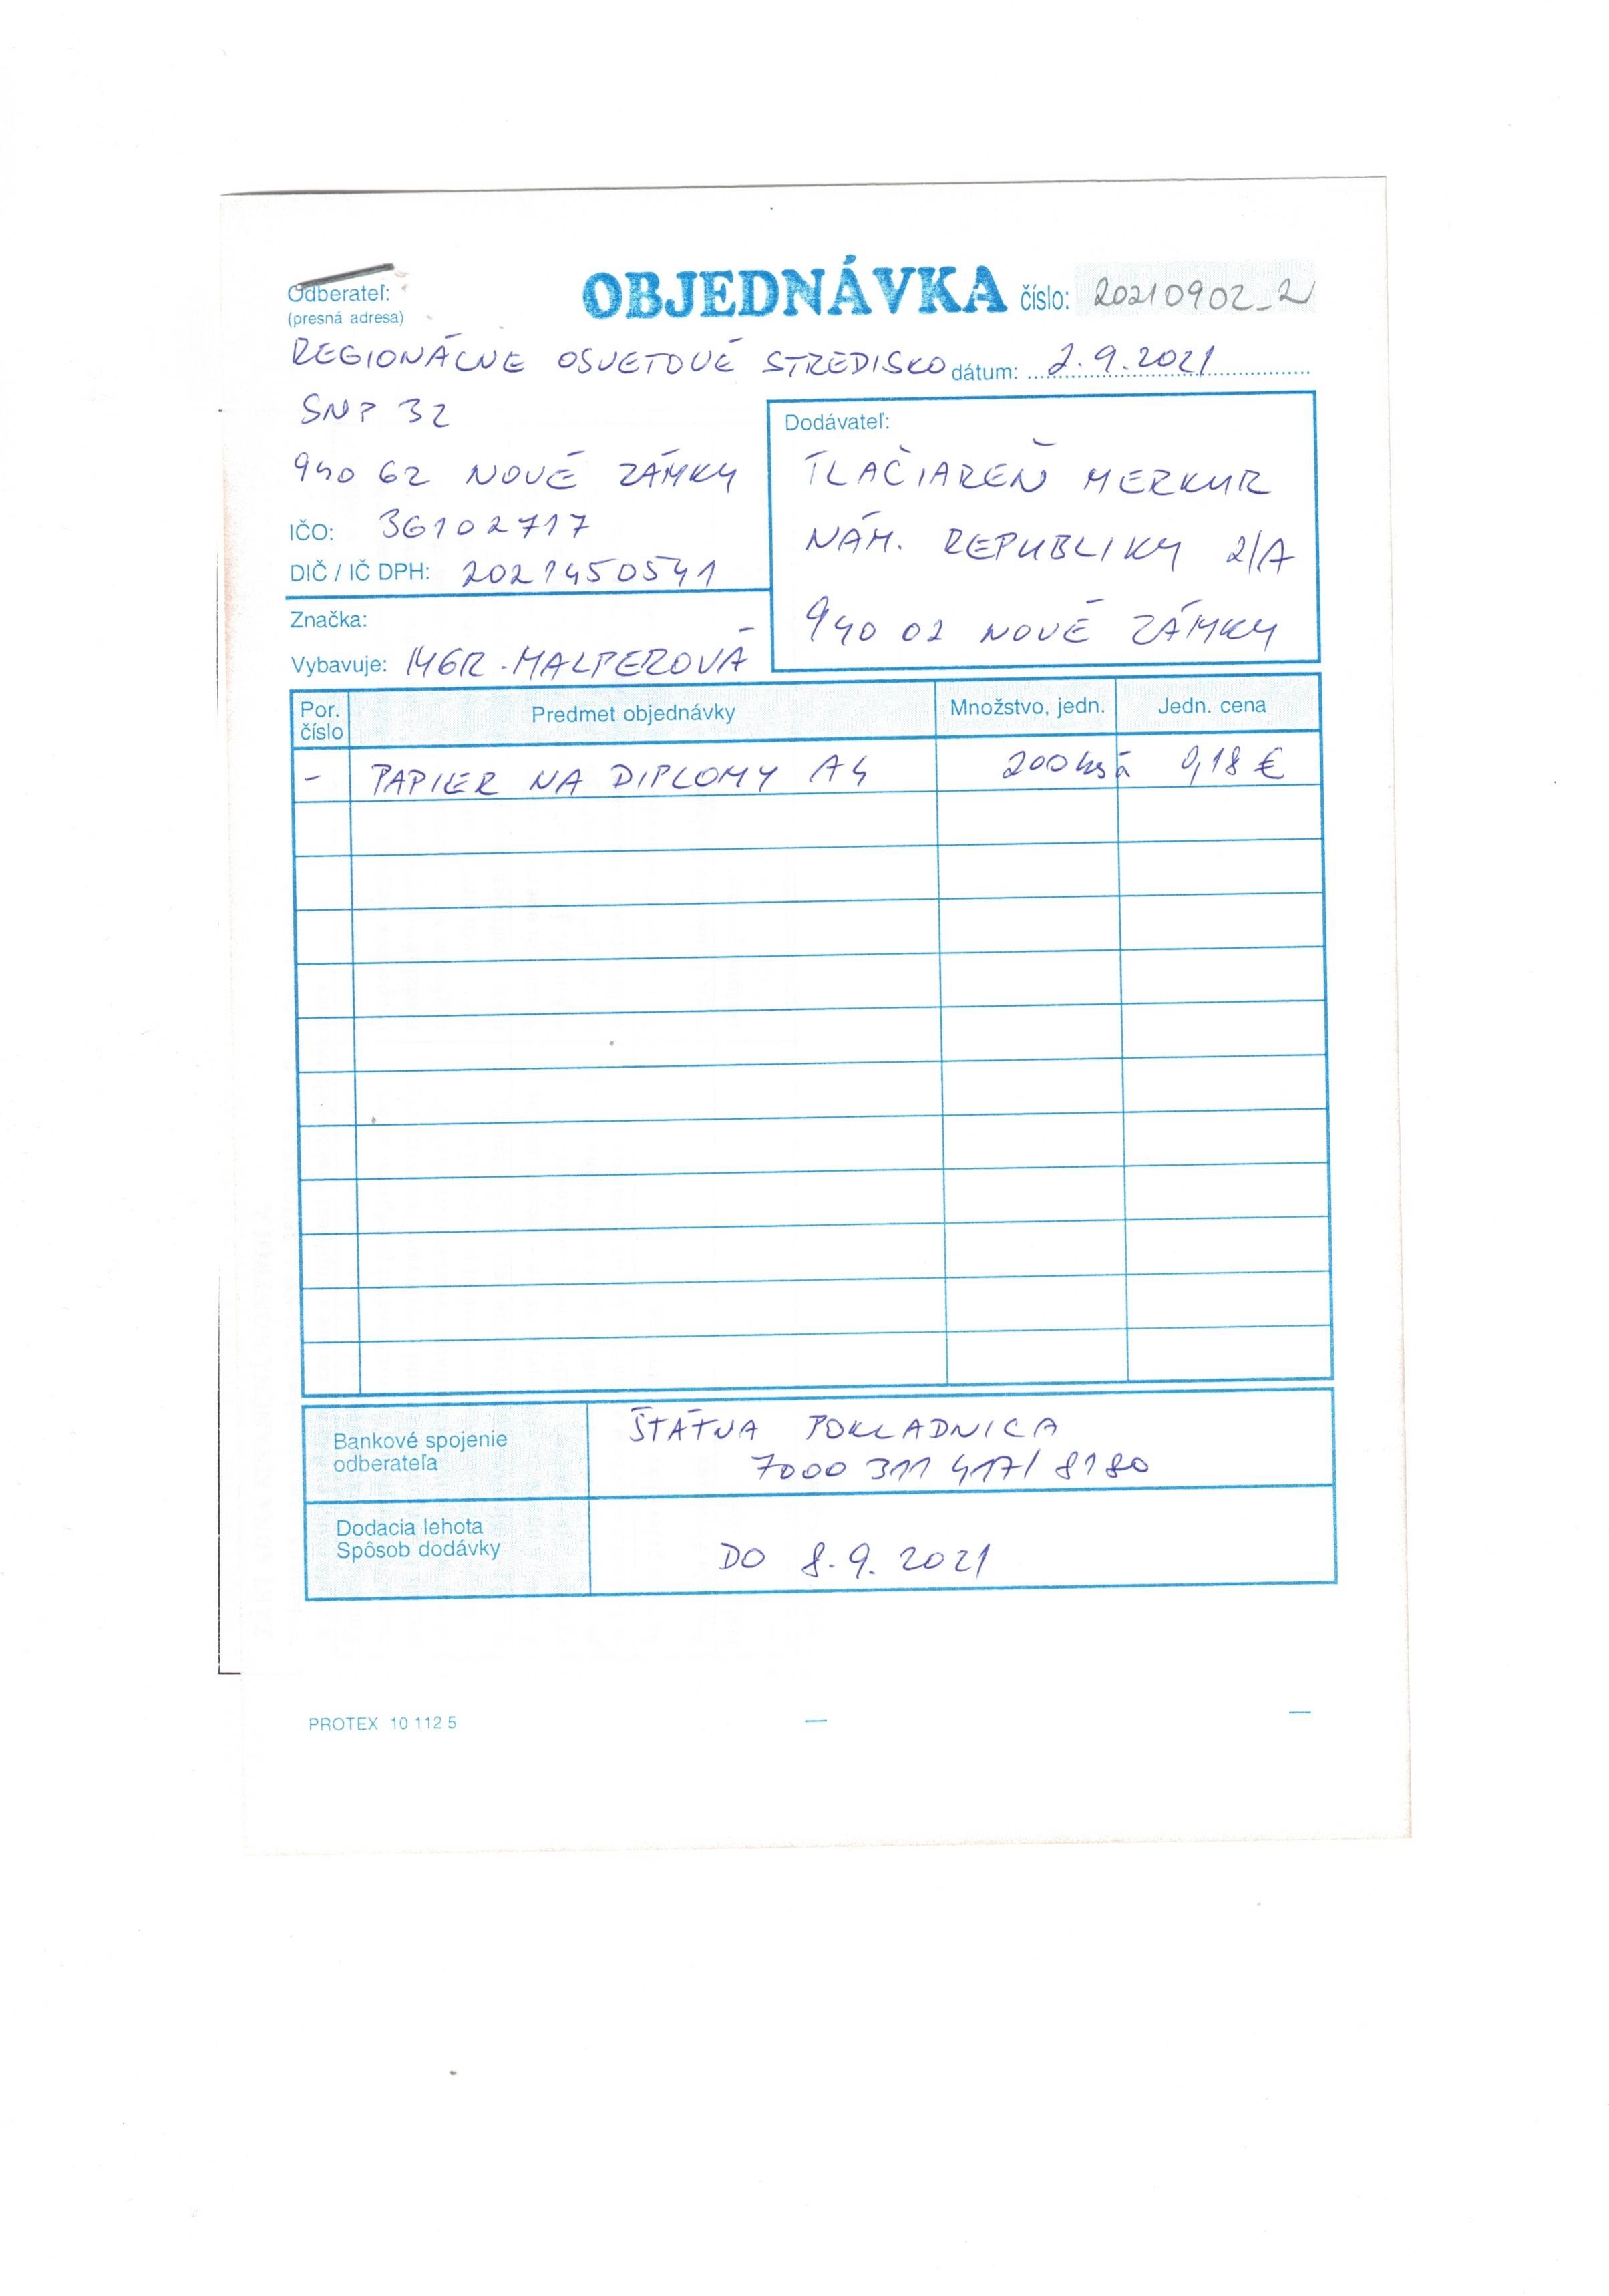 Odberateľ:
(presná adresa)
OBJEDNÁVKA číslo: 20210902_2
REGIONÁLNE OSVETOVÉ STREDISKO dátum: 2.9.2021
SNP 32
940 62 NOVÉ ZÁMKY
IČO: 36102717
DIČ / IČ DPH: 2021450541
Značka:
Vybavuje: MGR. MALPEROVÁ
Dodávateľ:
TLAČIAREŇ MERKUR
NÁM. REPUBLIKY 2/A
940 02 NOVÉ ZÁMKY
Por. číslo Predmet objednávky Množstvo, jedn. Jedn. cena
- PAPIER NA DIPLOMY A4 200 ks á 0,18 €
Bankové spojenie
odberateľa
ŠTÁTNA POKLADNICA
7000 311 417/ 8180
Dodacia lehota
Spôsob dodávky
DO 8.9. 2021
PROTEX 10 112 5